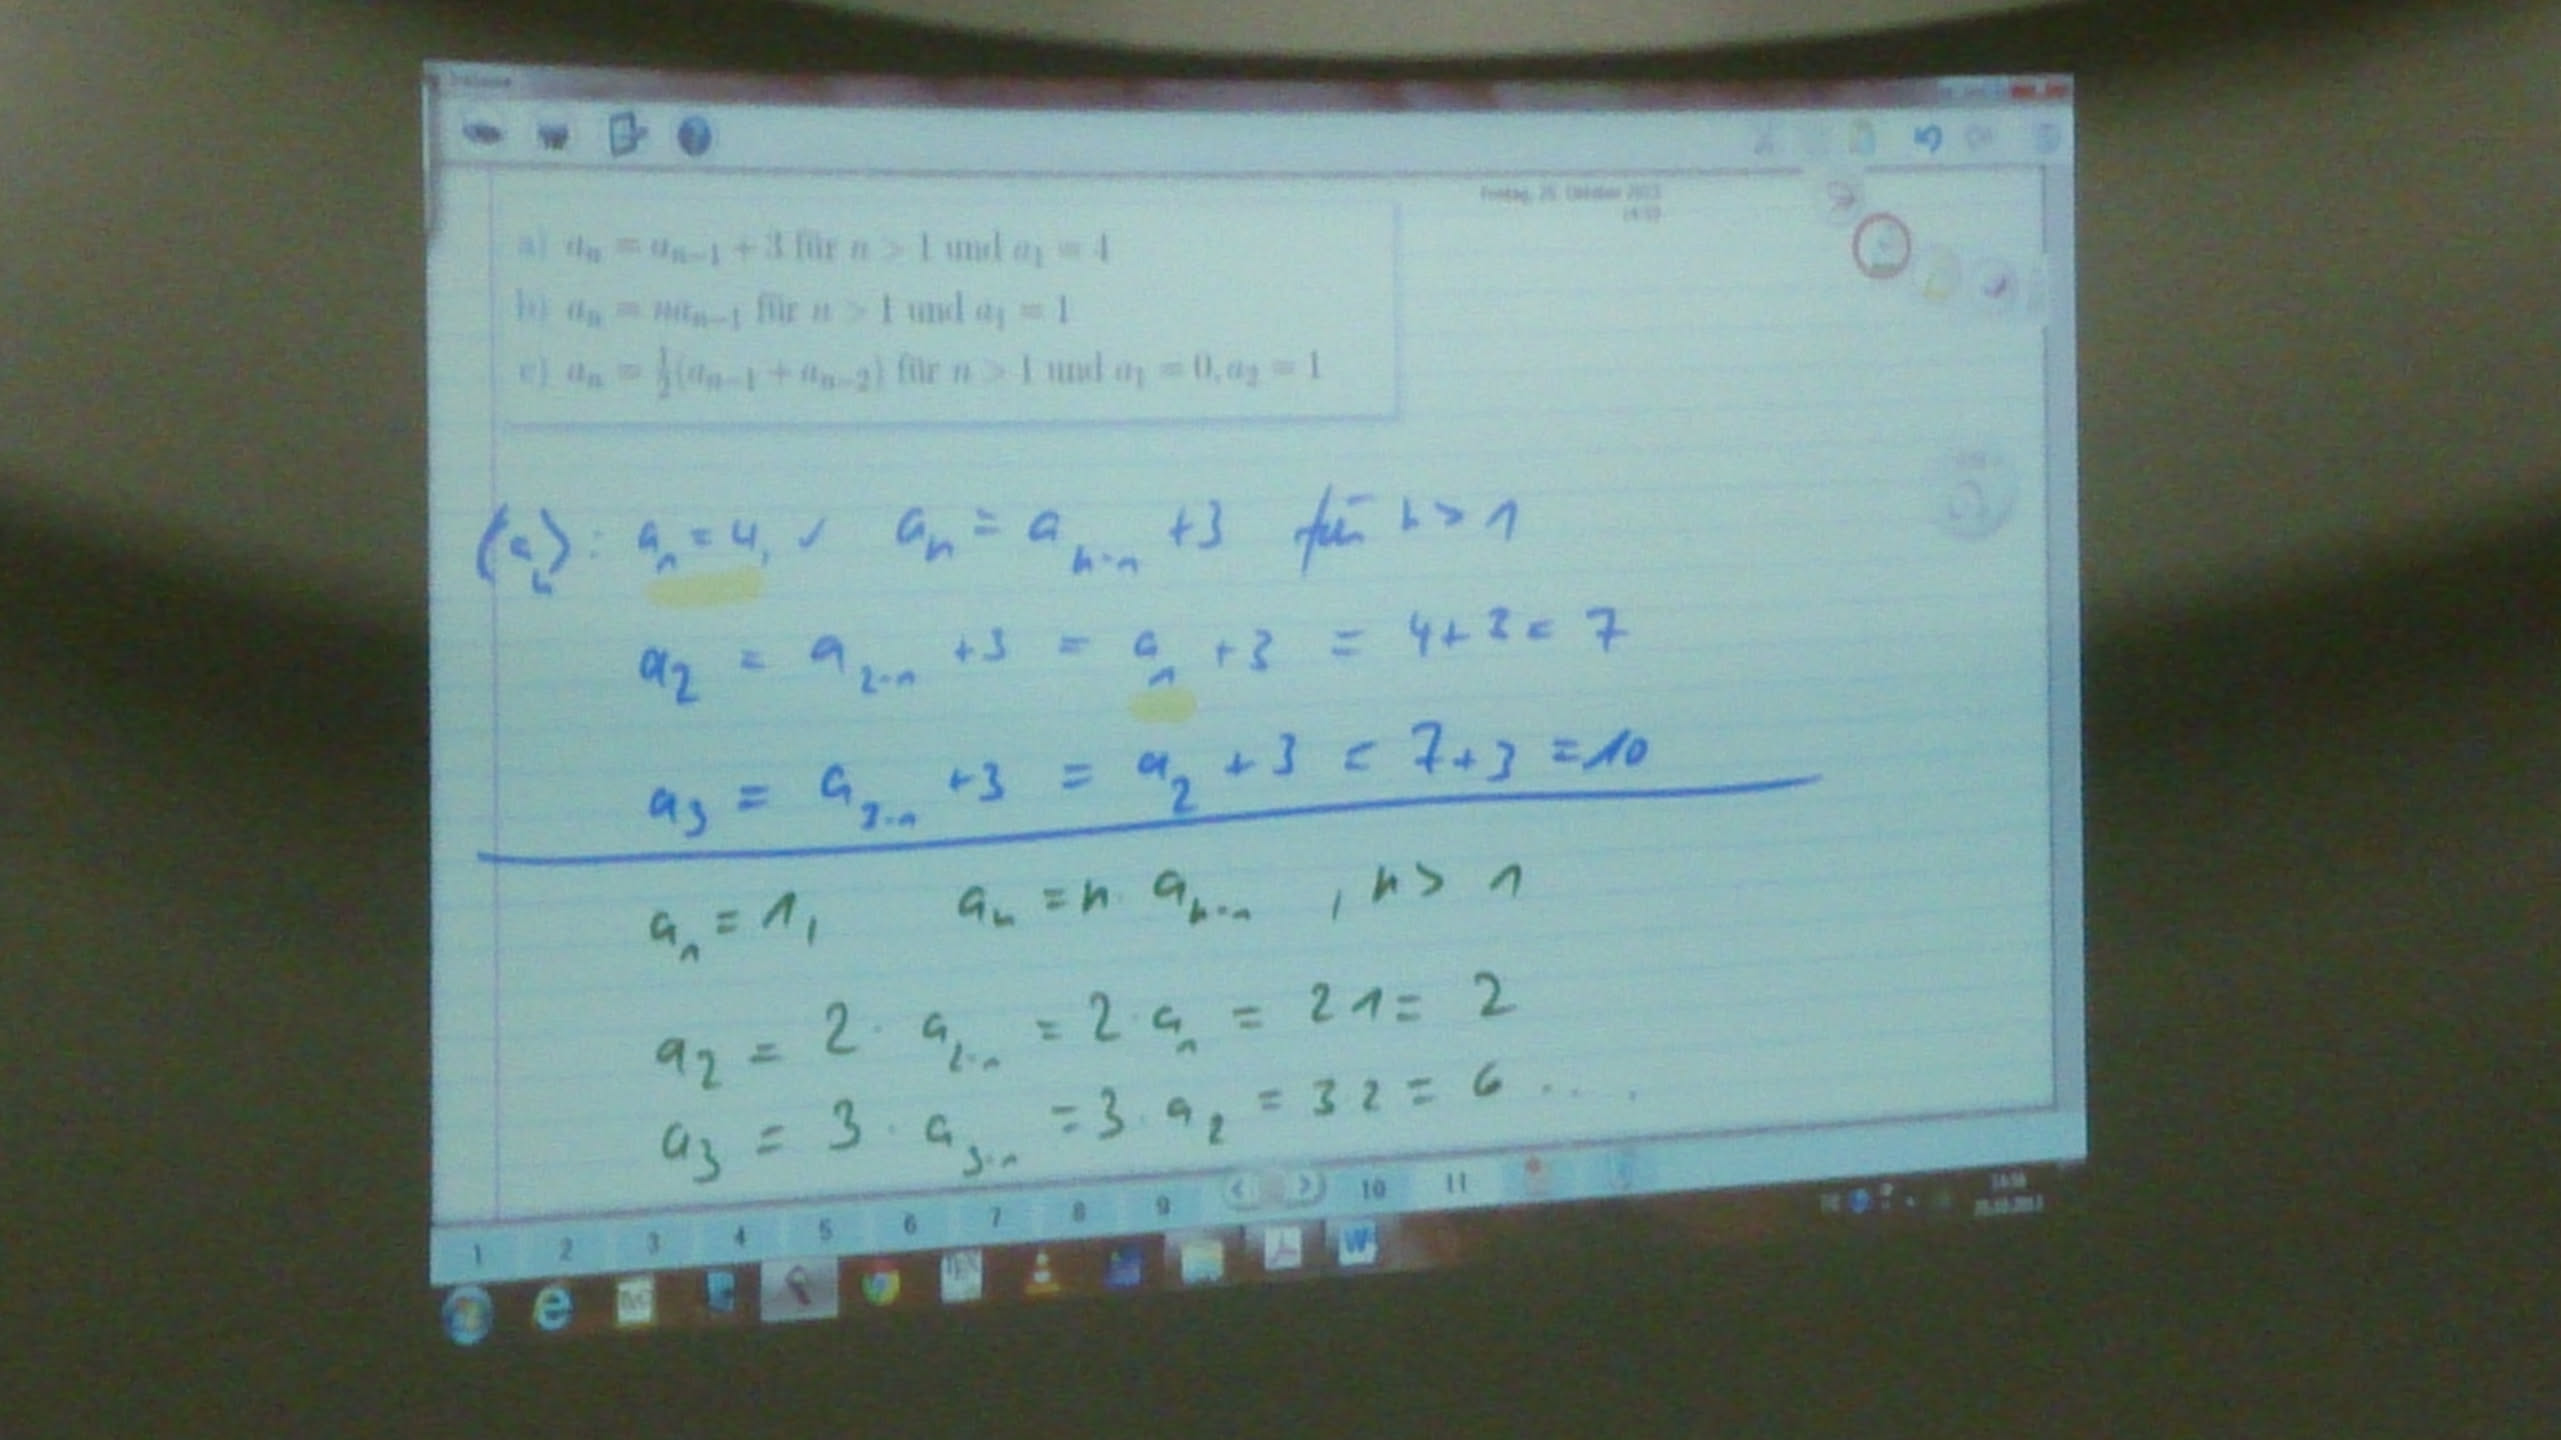 Freitag, 25. Oktober 2013
a) aₙ = aₙ₋₁ + 3 für n > 1 und a₁ = 4
b) aₙ = naₙ₋₁ für n > 1 und a₁ = 1
c) aₙ = ½(aₙ₋₁ + aₙ₋₂) für n > 1 und a₁ = 0, a₂ = 1
(aₙ): a₁ = 4, ✓ aₙ = aₙ₋₁ + 3 für n > 1
a₂ = a₂₋₁ + 3 = a₁ + 3 = 4 + 3 = 7
a₃ = a₃₋₁ + 3 = a₂ + 3 = 7 + 3 = 10
a₁ = 1, aₙ = n · aₙ₋₁ , n > 1
a₂ = 2 · a₂₋₁ = 2 · a₁ = 2 1 = 2
a₃ = 3 · a₃₋₁ = 3 · a₂ = 3 2 = 6 ....
1 2 3 4 5 6 7 8 9 < > 10 11